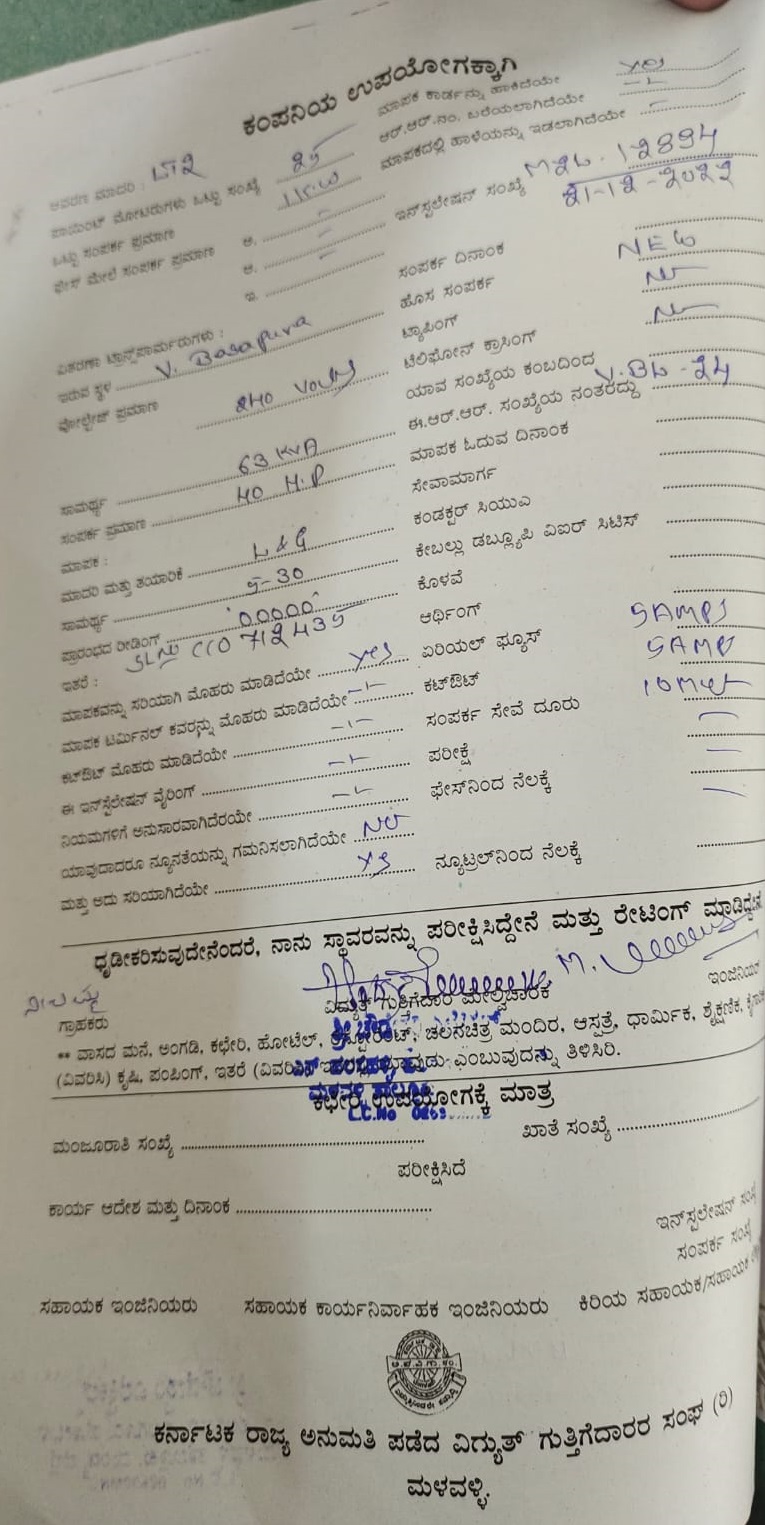 ಕಂಪನಿಯ ಉಪಯೋಗಕ್ಕಾಗಿ
ಮಾಪಕ ಕಾರ್ಡನ್ನು ಹಾಕಿದೆಯೇ yes
ಆರ್.ಆರ್.ನಂ. ಬರೆಯಲಾಗಿದೆಯೇ
ಮಾಪಕದಲ್ಲಿ ಹಾಳೆಯನ್ನು ಇಡಲಾಗಿದೆಯೇ
ಆವರಣ ಮಾದರಿ : LT2
ಪಾಯಿಂಟ್ ಮೋಟರುಗಳು ಒಟ್ಟು ಸಂಖ್ಯೆ
ಒಟ್ಟು ಸಂಪರ್ಕ ಪ್ರಮಾಣ
ಫೇಸ್ ಮೇಲೆ ಸಂಪರ್ಕ ಪ್ರಮಾಣ ಅ.
ಆ.
ಇ.
ಇನ್‌ಸ್ಟಲೇಷನ್ ಸಂಖ್ಯೆ M2L. 12894
21-12-2022
ಸಂಪರ್ಕ ದಿನಾಂಕ
ಹೊಸ ಸಂಪರ್ಕ NEW
ಟ್ಯಾಪಿಂಗ್ No
ಟೆಲಿಫೋನ್ ಕ್ರಾಸಿಂಗ್ No
ಯಾವ ಸಂಖ್ಯೆಯ ಕಂಬದಿಂದ
ಈ.ಆರ್.ಆರ್. ಸಂಖ್ಯೆಯ ನಂತರದ್ದು V.BL-24
ಮಾಪಕ ಓದುವ ದಿನಾಂಕ
ಸೇವಾಮಾರ್ಗ
ಕಂಡಕ್ಟರ್ ಸಿಯುಎ
ಕೇಬಲ್ಲು ಡಬ್ಲ್ಯೂಪಿ ವಿಐಆರ್ ಸಿಟಿಸ್
ಕೊಳವೆ
ಆರ್ಥಿಂಗ್
ಏರಿಯಲ್ ಫ್ಯೂಸ್ 5AMPS
ಕಟ್‌ಔಟ್ 5AMP
ಸಂಪರ್ಕ ಸೇವೆ ದೂರು
ಪರೀಕ್ಷೆ
ಫೇಸ್‌ನಿಂದ ನೆಲಕ್ಕೆ
ನ್ಯೂಟ್ರಲ್‌ನಿಂದ ನೆಲಕ್ಕೆ
ವಿತರಣಾ ಟ್ರಾನ್ಸ್‌ಫಾರ್ಮರುಗಳು :
ಇರುವ ಸ್ಥಳ V. Basapura
ವೋಲ್ಟೇಜ್ ಪ್ರಮಾಣ 240 Volts
ಸಾಮರ್ಥ್ಯ 63 KVA
ಸಂಪರ್ಕ ಪ್ರಮಾಣ 40 H.P
ಮಾಪಕ :
ಮಾದರಿ ಮತ್ತು ತಯಾರಿಕೆ L & G
ಸಾಮರ್ಥ್ಯ 5-30
ಪ್ರಾರಂಭದ ರೀಡಿಂಗ್ 00000
ಇತರೆ : SLNo CCO 712435
ಮಾಪಕವನ್ನು ಸರಿಯಾಗಿ ಮೊಹರು ಮಾಡಿದೆಯೇ yes
ಮಾಪಕ ಟರ್ಮಿನಲ್ ಕವರನ್ನು ಮೊಹರು ಮಾಡಿದೆಯೇ
ಕಟ್‌ಔಟ್ ಮೊಹರು ಮಾಡಿದೆಯೇ
ಈ ಇನ್‌ಸ್ಟಲೇಷನ್ ವೈರಿಂಗ್
ನಿಯಮಗಳಿಗೆ ಅನುಸಾರವಾಗಿದೆರಯೇ
ಯಾವುದಾದರೂ ನ್ಯೂನತೆಯನ್ನು ಗಮನಿಸಲಾಗಿದೆಯೇ No
ಮತ್ತು ಅದು ಸರಿಯಾಗಿದೆಯೇ yes
ಧೃಡೀಕರಿಸುವುದೇನೆಂದರೆ, ನಾನು ಸ್ಥಾವರವನ್ನು ಪರೀಕ್ಷಿಸಿದ್ದೇನೆ ಮತ್ತು ರೇಟಿಂಗ್ ಮಾಡಿದ್ದೇನೆ
ಗ್ರಾಹಕರು ವಿದ್ಯುತ್ ಗುತ್ತಿಗೆದಾರ ಮೇಲ್ವಿಚಾರಕ ಇಂಜಿನಿಯರ್
** ವಾಸದ ಮನೆ, ಅಂಗಡಿ, ಕಛೇರಿ, ಹೋಟೆಲ್, ರೆಸ್ಟೋರೆಂಟ್, ಚಲನಚಿತ್ರ ಮಂದಿರ, ಆಸ್ಪತ್ರೆ, ಧಾರ್ಮಿಕ, ಶೈಕ್ಷಣಿಕ,
(ವಿವರಿಸಿ) ಕೃಷಿ, ಪಂಪಿಂಗ್, ಇತರೆ ಎಂಬುವುದನ್ನು ತಿಳಿಸಿರಿ.
ಕಛೇರಿ ಉಪಯೋಗಕ್ಕೆ ಮಾತ್ರ
ಮಂಜೂರಾತಿ ಸಂಖ್ಯೆ ಖಾತೆ ಸಂಖ್ಯೆ
ಪರೀಕ್ಷಿಸಿದೆ
ಕಾರ್ಯ ಆದೇಶ ಮತ್ತು ದಿನಾಂಕ
ಇನ್‌ಸ್ಟಲೇಷನ್
ಸಂಪರ್ಕ
ಸಹಾಯಕ ಇಂಜಿನಿಯರು ಸಹಾಯಕ ಕಾರ್ಯನಿರ್ವಾಹಕ ಇಂಜಿನಿಯರು ಕಿರಿಯ ಸಹಾಯಕ/ಸಹಾಯಕ
ಕರ್ನಾಟಕ ರಾಜ್ಯ ಅನುಮತಿ ಪಡೆದ ವಿದ್ಯುತ್ ಗುತ್ತಿಗೆದಾರರ ಸಂಘ (ರಿ)
ಮಳವಳ್ಳಿ.